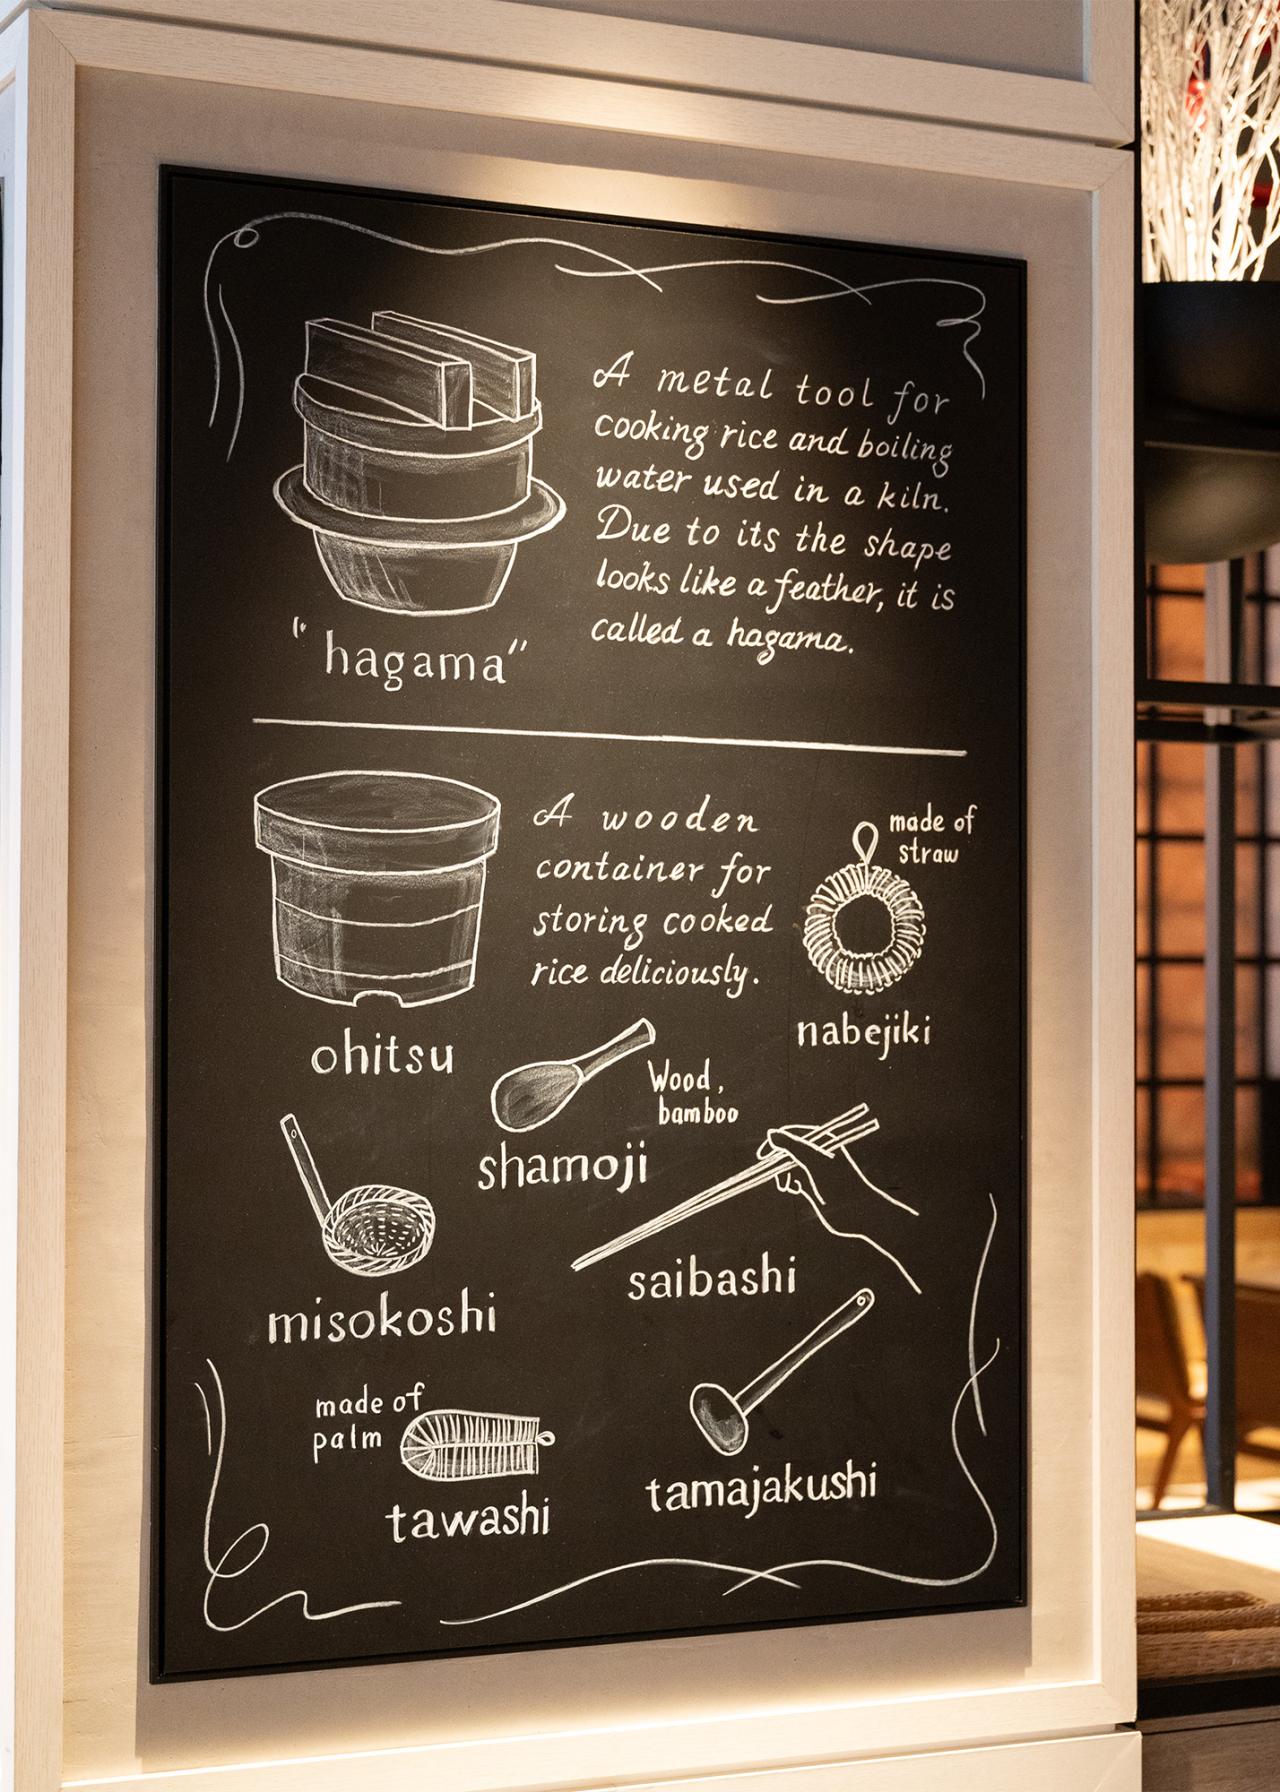 A metal tool for
cooking rice and boiling
water used in a kiln.
Due to its the shape
looks like a feather, it is
called a hagama.
"hagama"
A wooden
container for
storing cooked
rice deliciously.
ohitsu
made of
straw
nabejiki
Wood,
bamboo
shamoji
misokoshi
saibashi
made of
palm
tawashi
tamajakushi